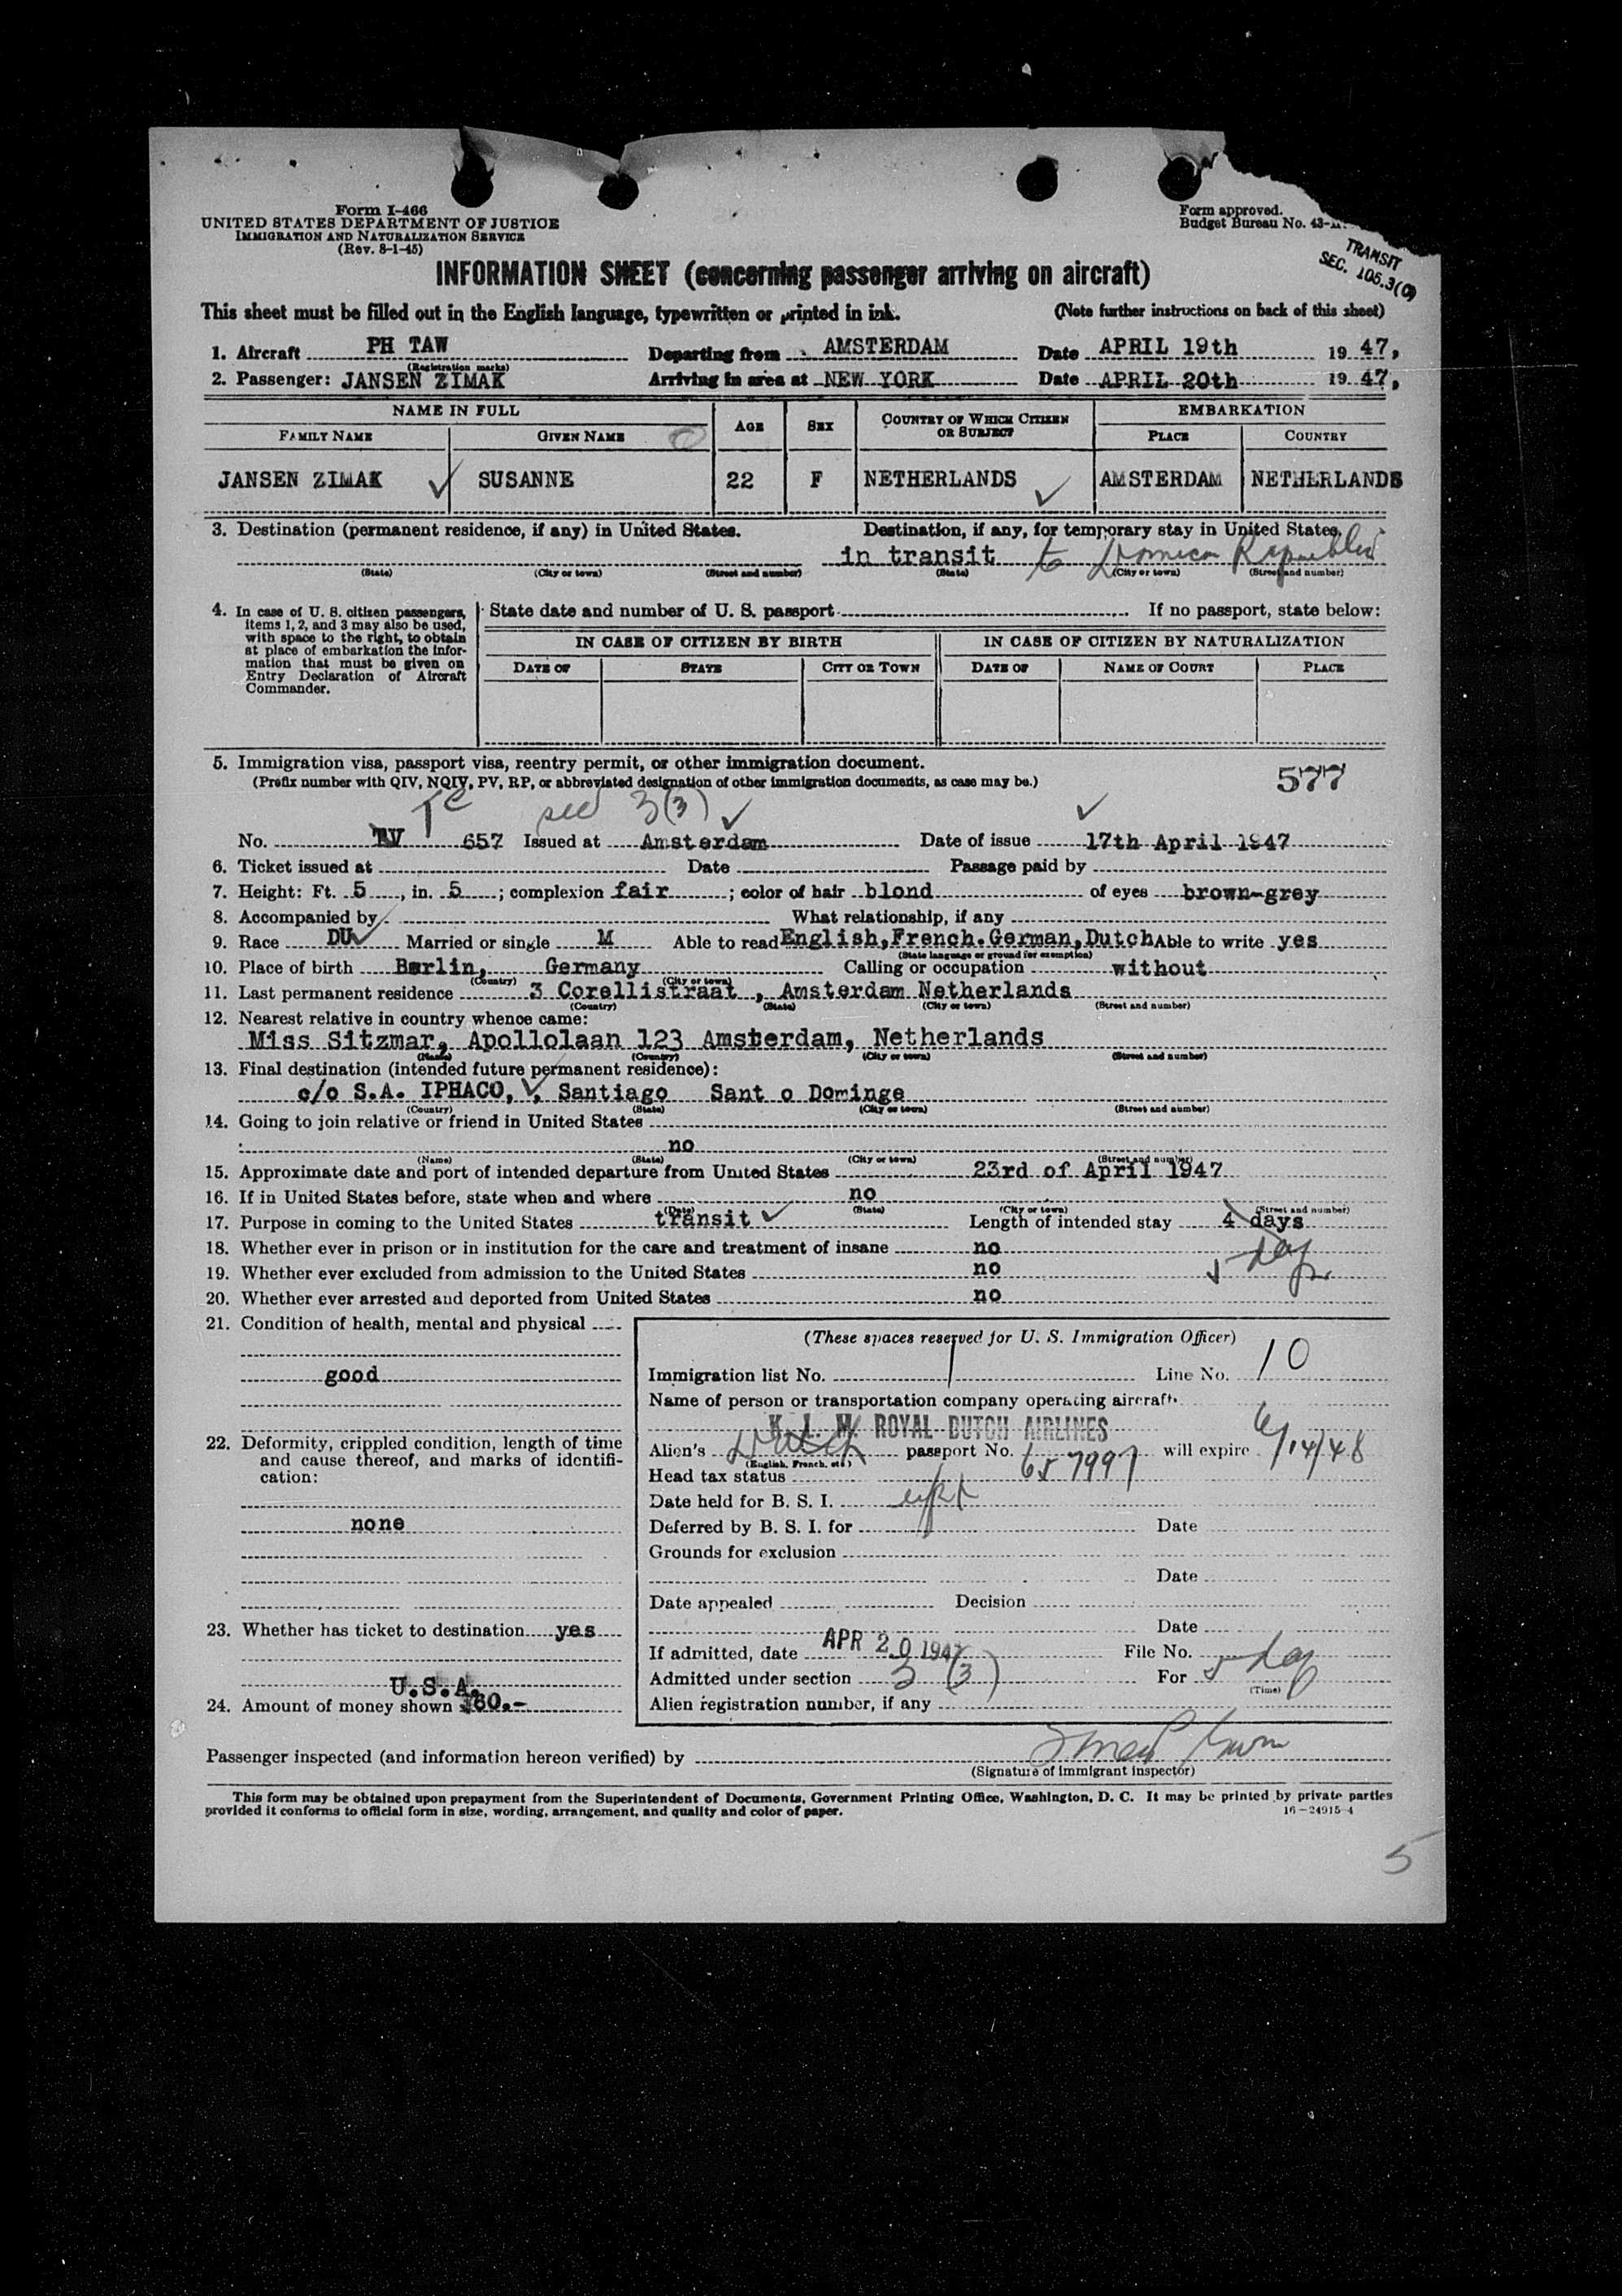 Form I-466
UNITED STATES DEPARTMENT OF JUSTICE
IMMIGRATION AND NATURALIZATION SERVICE
(Rev. 8-1-45)
Form approved.
Budget Bureau No. 43-
TRANSIT
SEC. 105.3(C)
INFORMATION SHEET (concerning passenger arriving on aircraft)
This sheet must be filled out in the English language, typewritten or printed in ink. (Note further instructions on back of this sheet)
1. Aircraft PH TAW Departing from AMSTERDAM Date APRIL 19th 19 47,
(Registration marks)
2. Passenger: JANSEN ZIMAK Arriving in area at NEW YORK Date APRIL 20th 19 47,
NAME IN FULL AGE SEX COUNTRY OF WHICH CITIZEN OR SUBJECT EMBARKATION
FAMILY NAME GIVEN NAME PLACE COUNTRY
JANSEN ZIMAK SUSANNE 22 F NETHERLANDS AMSTERDAM NETHERLANDS
3. Destination (permanent residence, if any) in United States. Destination, if any, for temporary stay in United States.
in transit to
(State) (City or town) (Street and number) (State) (City or town) (Street and number)
4. In case of U. S. citizen passengers, items 1, 2, and 3 may also be used, with space to the right, to obtain at place of embarkation the information that must be given on Entry Declaration of Aircraft Commander.
State date and number of U. S. passport If no passport, state below:
IN CASE OF CITIZEN BY BIRTH IN CASE OF CITIZEN BY NATURALIZATION
DATE OF STATE CITY OR TOWN DATE OF NAME OF COURT PLACE
5. Immigration visa, passport visa, reentry permit, or other immigration document.
(Prefix number with QIV, NQIV, PV, RP, or abbreviated designation of other immigration documents, as case may be.)
577
sec 3(3)
No. TV 657 Issued at Amsterdam Date of issue 17th April 1947
6. Ticket issued at Date Passage paid by
7. Height: Ft. 5, in. 5; complexion fair; color of hair blond of eyes brown-grey
8. Accompanied by What relationship, if any
9. Race DU Married or single M Able to read English, French. German, Dutch Able to write yes
(State language or ground for exemption)
10. Place of birth Berlin, Germany Calling or occupation without
(Country) (City or town)
11. Last permanent residence 3 Corellistraat, Amsterdam Netherlands
(Country) (State) (City or town) (Street and number)
12. Nearest relative in country whence came:
Miss Sitzmar, Apollolaan 123 Amsterdam, Netherlands
(Name) (Country) (City or town) (Street and number)
13. Final destination (intended future permanent residence):
c/o S.A. IPHACO, , Santiago Sant o Dominge
(Country) (State) (City or town) (Street and number)
14. Going to join relative or friend in United States
no
(Name) (State) (City or town) (Street and number)
15. Approximate date and port of intended departure from United States 23rd of April 1947
16. If in United States before, state when and where no
(Date) (State) (City or town) (Street and number)
17. Purpose in coming to the United States transit Length of intended stay 4 days
5 days
18. Whether ever in prison or in institution for the care and treatment of insane no
19. Whether ever excluded from admission to the United States no
20. Whether ever arrested and deported from United States no
21. Condition of health, mental and physical
good
22. Deformity, crippled condition, length of time and cause thereof, and marks of identification:
none
23. Whether has ticket to destination yes
U.S.A.
24. Amount of money shown $60.-
(These spaces reserved for U. S. Immigration Officer)
Immigration list No. 1 Line No. 10
Name of person or transportation company operating aircraft
K. L. M. ROYAL DUTCH AIRLINES
Alien's Dutch passport No. 657997 will expire 6/14/48
(English, French, etc.)
Head tax status
Date held for B. S. I.
Deferred by B. S. I. for Date
Grounds for exclusion
Date
Date appealed Decision
Date
If admitted, date APR 20 1947 File No.
Admitted under section 3 (3) For 5 days
(Time)
Alien registration number, if any
Passenger inspected (and information hereon verified) by
(Signature of immigrant inspector)
This form may be obtained upon prepayment from the Superintendent of Documents, Government Printing Office, Washington, D. C. It may be printed by private parties
provided it conforms to official form in size, wording, arrangement, and quality and color of paper.
16-24915-4
5